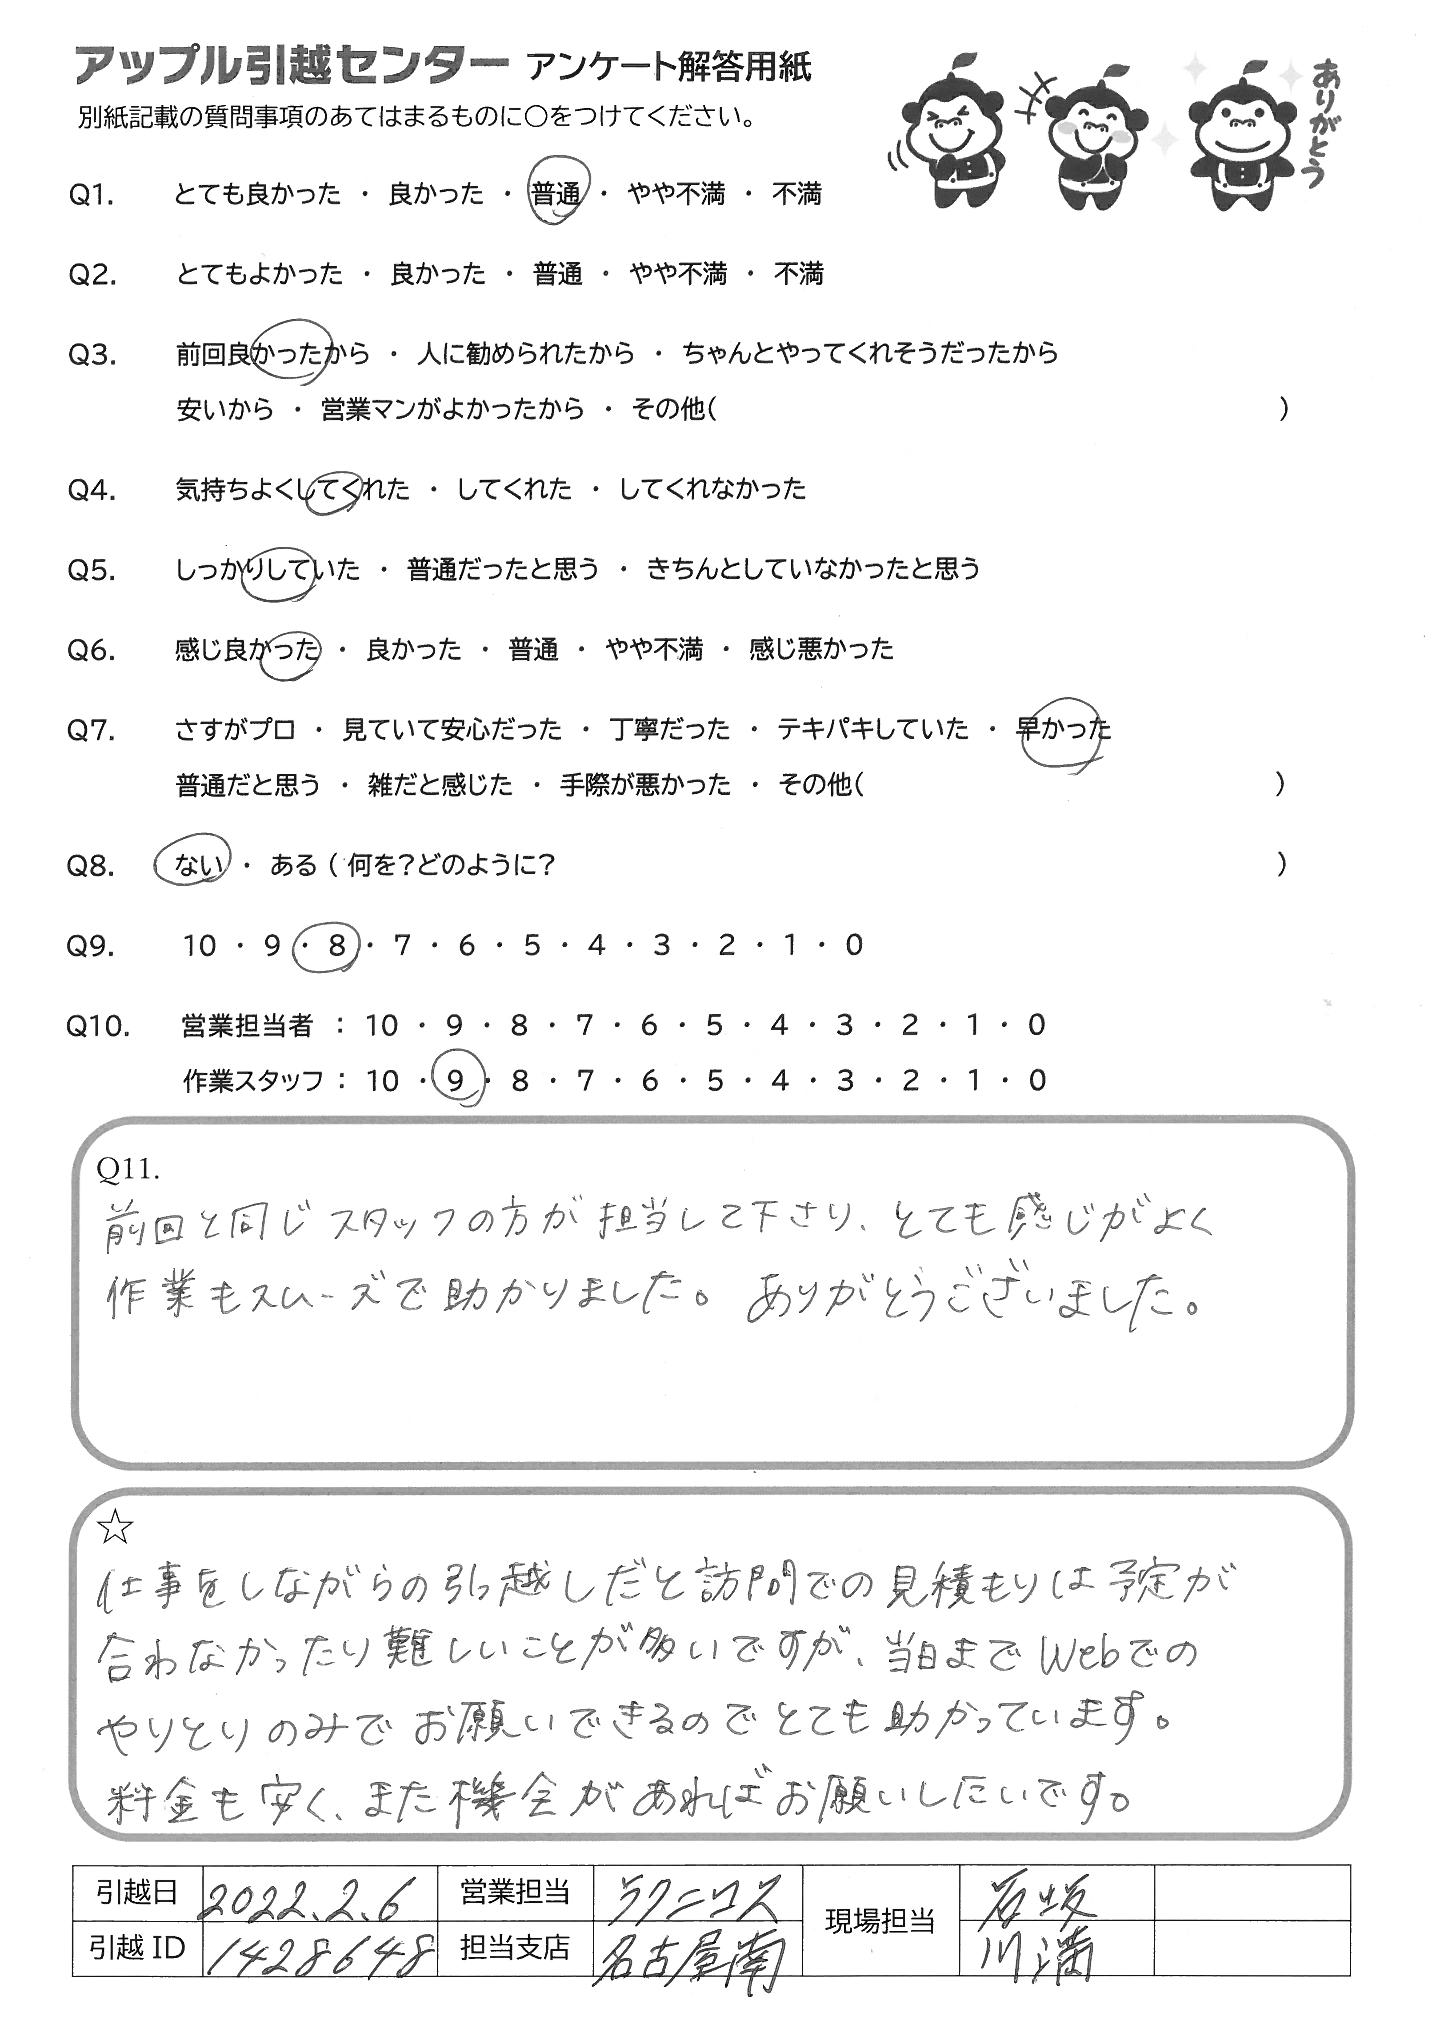 アップル引越センター アンケート解答用紙
別紙記載の質問事項のあてはまるものに○をつけてください。
ありがとう
Q1. とても良かった ・ 良かった ・ 普通 ・ やや不満 ・ 不満
Q2. とてもよかった ・ 良かった ・ 普通 ・ やや不満 ・ 不満
Q3. 前回良かったから ・ 人に勧められたから ・ ちゃんとやってくれそうだったから
安いから ・ 営業マンがよかったから ・ その他( )
Q4. 気持ちよくしてくれた ・ してくれた ・ してくれなかった
Q5. しっかりしていた ・ 普通だったと思う ・ きちんとしていなかったと思う
Q6. 感じ良かった ・ 良かった ・ 普通 ・ やや不満 ・ 感じ悪かった
Q7. さすがプロ ・ 見ていて安心だった ・ 丁寧だった ・ テキパキしていた ・ 早かった
普通だと思う ・ 雑だと感じた ・ 手際が悪かった ・ その他( )
Q8. ない ・ ある ( 何を?どのように? )
Q9. 10 ・ 9 ・ 8 ・ 7 ・ 6 ・ 5 ・ 4 ・ 3 ・ 2 ・ 1 ・ 0
Q10. 営業担当者 : 10 ・ 9 ・ 8 ・ 7 ・ 6 ・ 5 ・ 4 ・ 3 ・ 2 ・ 1 ・ 0
作業スタッフ : 10 ・ 9 ・ 8 ・ 7 ・ 6 ・ 5 ・ 4 ・ 3 ・ 2 ・ 1 ・ 0
Q11.
前回と同じスタッフの方が担当して下さり、とても感じがよく
作業もスムーズで助かりました。ありがとうございました。
☆
仕事をしながらの引っ越しだと訪問での見積もりは予定が
合わなかったり難しいことが多いですが、当日までWebでの
やりとりのみでお願いできるのでとても助かっています。
料金も安く、また機会があればお願いしたいです。
引越日 2022.2.6 営業担当 ラクニコス 現場担当 石坂
引越ID 1428648 担当支店 名古屋南 川満